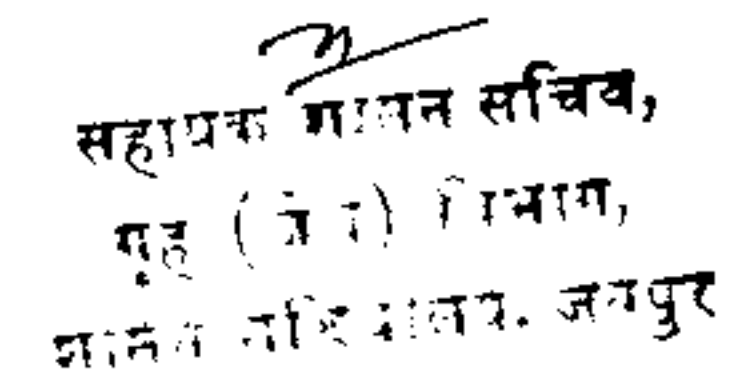 सहायक शासन सचिव,
गृह ( जेल ) विभाग,
शासन सचिवालय. जयपुर